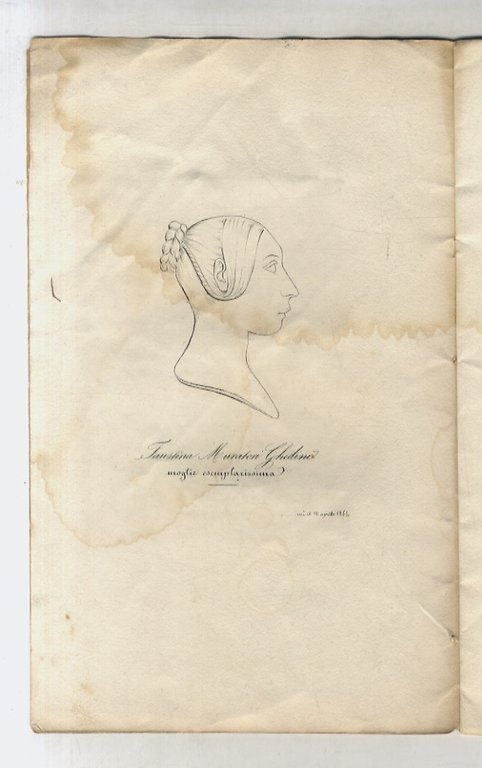 Faustina Muratori Ghedini
moglie esemplarissima
aprile